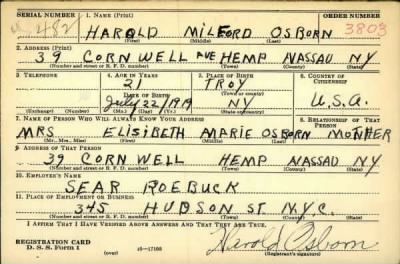 SERIAL NUMBER 1. NAME (Print) ORDER NUMBER
482 HAROLD MILFORD OSBORN 3803
(First) (Middle) (Last)
2. ADDRESS (Print)
39 CORNWELL AVE HEMP NASSAU NY
(Number and street or R. F. D. number) (Town) (County) (State)
3. TELEPHONE 4. AGE IN YEARS 5. PLACE OF BIRTH 6. COUNTRY OF CITIZENSHIP
21 TROY
DATE OF BIRTH (Town or county)
July 22, 1919 NY U.S.A.
(Exchange) (Number) (Mo.) (Day) (Yr.) (State or country)
7. NAME OF PERSON WHO WILL ALWAYS KNOW YOUR ADDRESS 8. RELATIONSHIP OF THAT PERSON
MRS ELISIBETH MARIE OSBORN MOTHER
(Mr., Mrs., Miss) (First) (Middle) (Last)
9. ADDRESS OF THAT PERSON
39 CORNWELL HEMP NASSAU NY
(Number and street or R. F. D. number) (Town) (County) (State)
10. EMPLOYER'S NAME
SEAR ROEBUCK
11. PLACE OF EMPLOYMENT OR BUSINESS
345 HUDSON ST. N.Y.C.
(Number and street or R. F. D. number) (Town) (County) (State)
I AFFIRM THAT I HAVE VERIFIED ABOVE ANSWERS AND THAT THEY ARE TRUE.
REGISTRATION CARD
D. S. S. FORM 1 (over) 16-17105 Harold Osborn
(Registrant's signature)